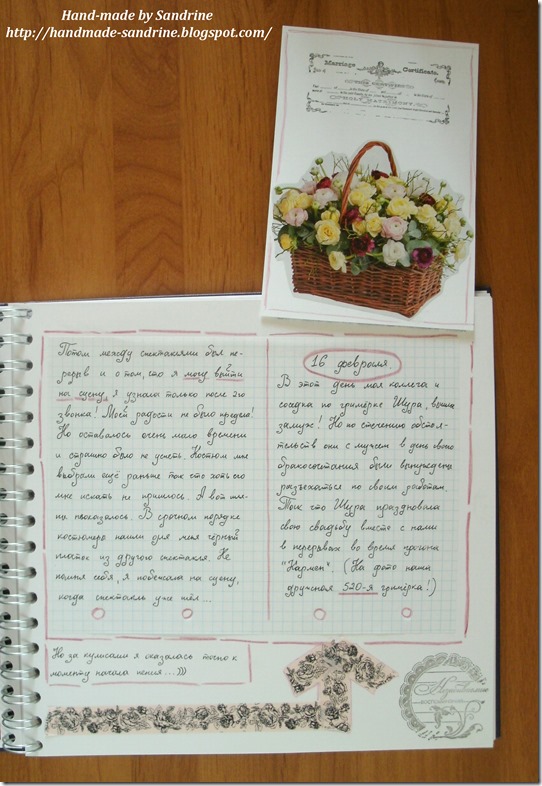 Hand-made by Sandrine
http://handmade-sandrine.blogspot.com/
Marriage Certificate.
HOLY MATRIMONY
Потом между спектаклями был пе-
рерыв и о том, что я могу выйти
на сцену, я узнала только после 2го
звонка! Моей радости не было предела!
Но оставалось очень мало времени
и страшно было не успеть. Костюм мы
выбрали ещё раньше так что хоть его
мне искать не пришлось. А вот
В срочном порядке
костюмеры нашли для меня чёрный
платок из другого спектакля. Не
помня себя, я побежала на сцену,
когда спектакль уже шёл...
Но за кулисами я оказалась точно к
моменту начала пения...)))
16 февраля
В этот день моя коллега и
соседка по гримёрке Шура, вышла
замуж! Но по стечению обстоя-
тельств они с мужем в день своего
бракосочетания были вынуждены
разъехаться по своим работам.
Так что Шура праздновала
свою свадьбу вместе с нами
в перерывах во время прогона
"Кармен". (На фото наша
дружная 520-я гримёрка!)